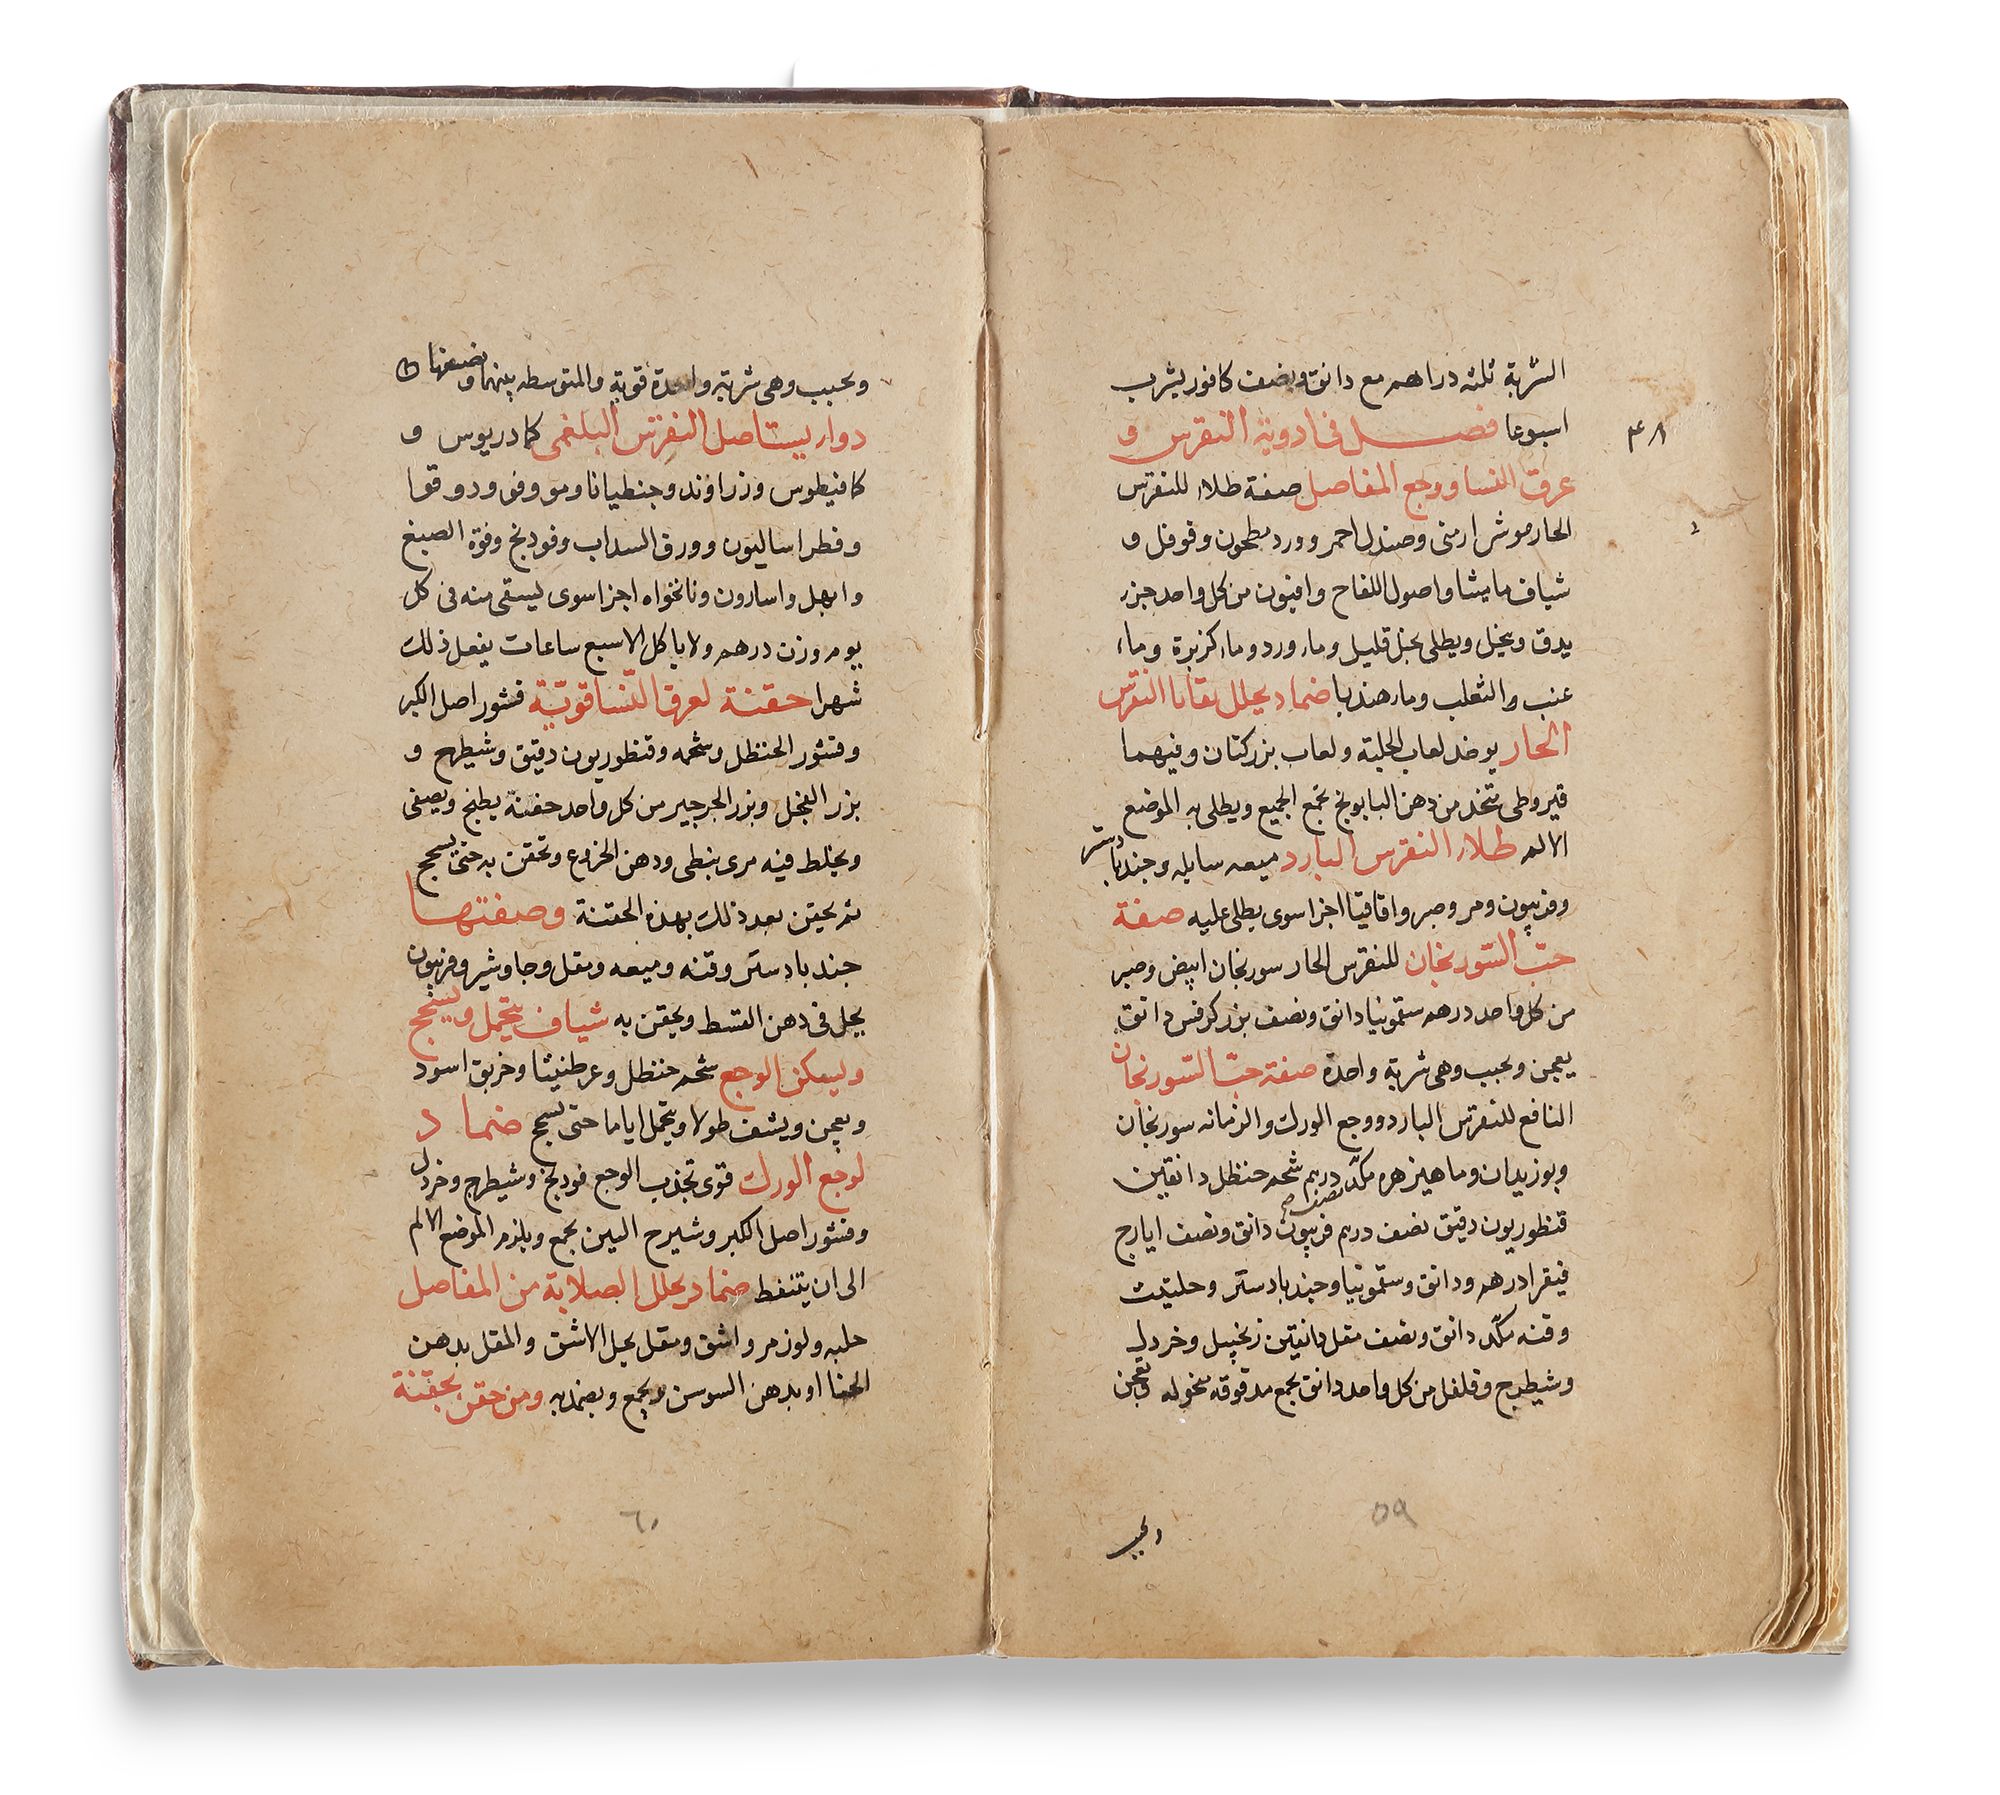 الشربة ثلثه دراهم مع دانق ونصف كافور يشرب
اسبوعا فصل فى ادوية النقرس و
عرق النسا ووجع المفاصل صفة طلاء للنقرس
الحار موش ارمنى وصندل احمر وورد مطحون وفوفل و
شياف ماميثا واصول اللفاح وافيون من كل واحد جزء
يدق وينخل ويطلى بخل قليل وماء ورد وماء كزبرة وماء
عنب والثعلب وماء هندبا ضماد يحلل بقايا النقرس
الحار يوخذ لعاب الحلبة ولعاب بزر كتان وفيهما
قيروطى يتخذ من دهن البابونج يجمع الجميع ويطلى به الموضع
الالم طلاء النقرس البارد ميعه سايله وجندبادستر
وفربيون ومر وصبر واقاقيا اجزا سوى يطلى عليه صفة
حب السورنجان للنقرس الحار سورنجان ابيض وصبر
من كل واحد درهم سقمونيا دانق ونصف بزر كرفس دانق
يعجن ويحبب وهى شربة واحدة صفة حب السورنجان
النافع للنقرس البارد ووجع الورك والزمانه سورنجان
وبوزيدان وماهيزهره مكد نصف درهم شحم حنظل دانقين
قنطوريون دقيق نصف درهم فربيون دانق ونصف ايارج
فيقرا درهم ودانق وسقمونيا وجندبادستر وحلتيت
وقنه مكد دانق ونصف مقل دانقين زنجبيل وخردل
وشيطرج وفلفل من كل واحد دانق يجمع مدقوقه منخوله ويعجن
ويحبب
٤٨
٥٩
ويحبب وهى شربة واحدة قوية والمتوسطه بينهما ونصفها
دواء يستاصل النقرس البلغمى كمادريوس و
كمافيطوس وزراوند وجنطيانا ومو وفو ودوقوا
وفطراساليون وورق السداب وفودنج وفوة الصبغ
وابهل واسارون ونانخواه اجزا سوى يسقى منه فى كل
يوم وزن درهم ولا ياكل الا سبع ساعات يفعل ذلك
شهرا حقنة لعرق النسا قوية قشور اصل الكبر
وقشور الحنظل وشحمه وقنطوريون دقيق وشيطرج و
بزر الفجل وبزر الجرجير من كل واحد حفنة يطبخ ويصفى
ويخلط فيه مرى نبطى ودهن الخروع وتحقن به حتى يسحج
ثم يحقن بعد ذلك بهذه الحقنة وصفتها
جندبادستر وقنه وميعه ومقل وجاوشير وفربيون
يحل فى دهن القسط ويحقن به شياف يتحمل ويسحج
وليسكن الوجع شحم حنظل وعرطنيثا وخربق اسود
ويعجن ويشف طولا ويتحمل اياما حتى يسحج ضماد
لوجع الورك قوى تجذب الوجع فودنج وشيطرج وخردل
وقشور اصل الكبر وشيرج التين يجمع ويلزم الموضع الالم
الى ان يتنفط ضماد يحلل الصلابة من المفاصل
حلبه ولوز مر واشق ومقل يحل الاشق والمقل بدهن
الحنا او بدهن السوسن ويجمع ويضمد به ومن حقن بحقنة
٦٠